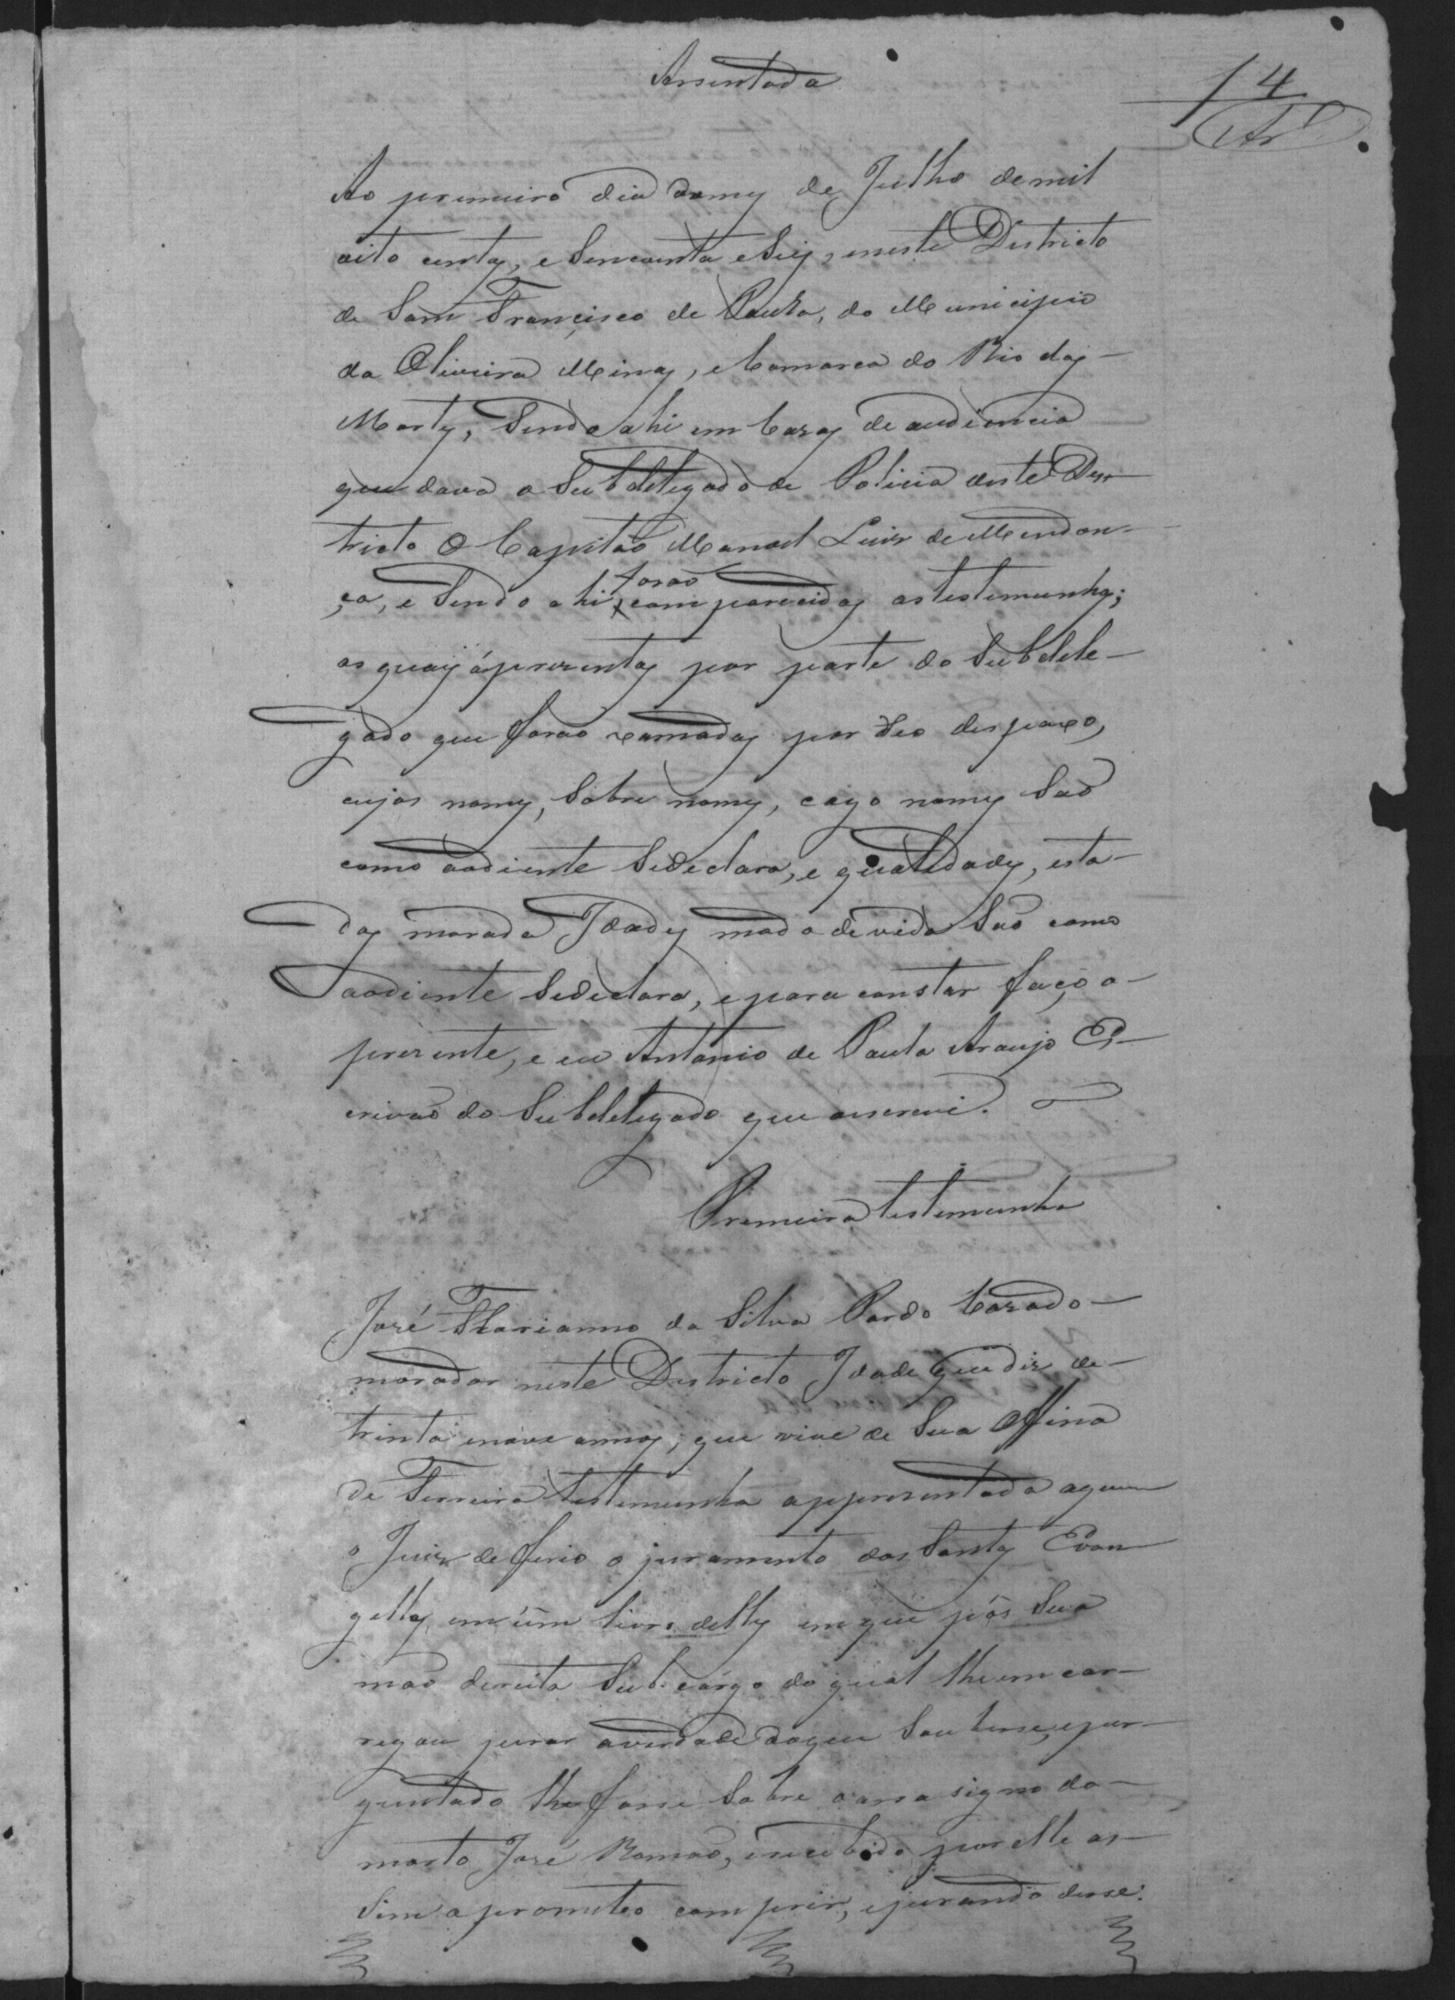 Assentada
14
Ar.º
Ao primeiro dia domes de Julho demil
oito centos, e Sencoenta eSeis, neste Districto
de Sam Francisco de Paula, do Municipio
da Oliveira Minas, e Comarca do Rio das
Mortes, Sendo ahi em Cazas de audiencia
que dava o Subdelegado de Policia deste Des-
tricto O Capitão Manoel Luis de Mendon-
ça, e Sendo ahi forão comparecidas astestemunhas;
as quais áprezentes por parte do Subdele-
gado que forão xamadas por Seo despaxo,
cujos nomes, Sobre nomes, cayo nomes São
como aodiente Sedeclara, e qualidades, esta-
dos morada Idades modo devida São como
aodiente Sedeclara, epara constar faço o-
prezente, e eu Antonio de Paula Araujo Es-
crivão do Subdelegado que ascrevi.
Premeira testemunha
José Florianno da Silva Pardo Cazado-
morador neste Destricto Idade que diz de-
trinta enove annos, que vive de Sua Officina
de Ferreiro testemunha apprezentada aquem
o Juiz deferio o juramento dos Santos Evan
gelhos em úm livro delles em que pôs Sua
mão direita Sub. cargo do qual lhe emcar-
regou jurar averdade doque Soubesse, eper-
guntado lhe fosse Sobre oassasigno do-
morto José Romão, erecebido por elle as-
Sim aprometeo comprir, ejurando disse.